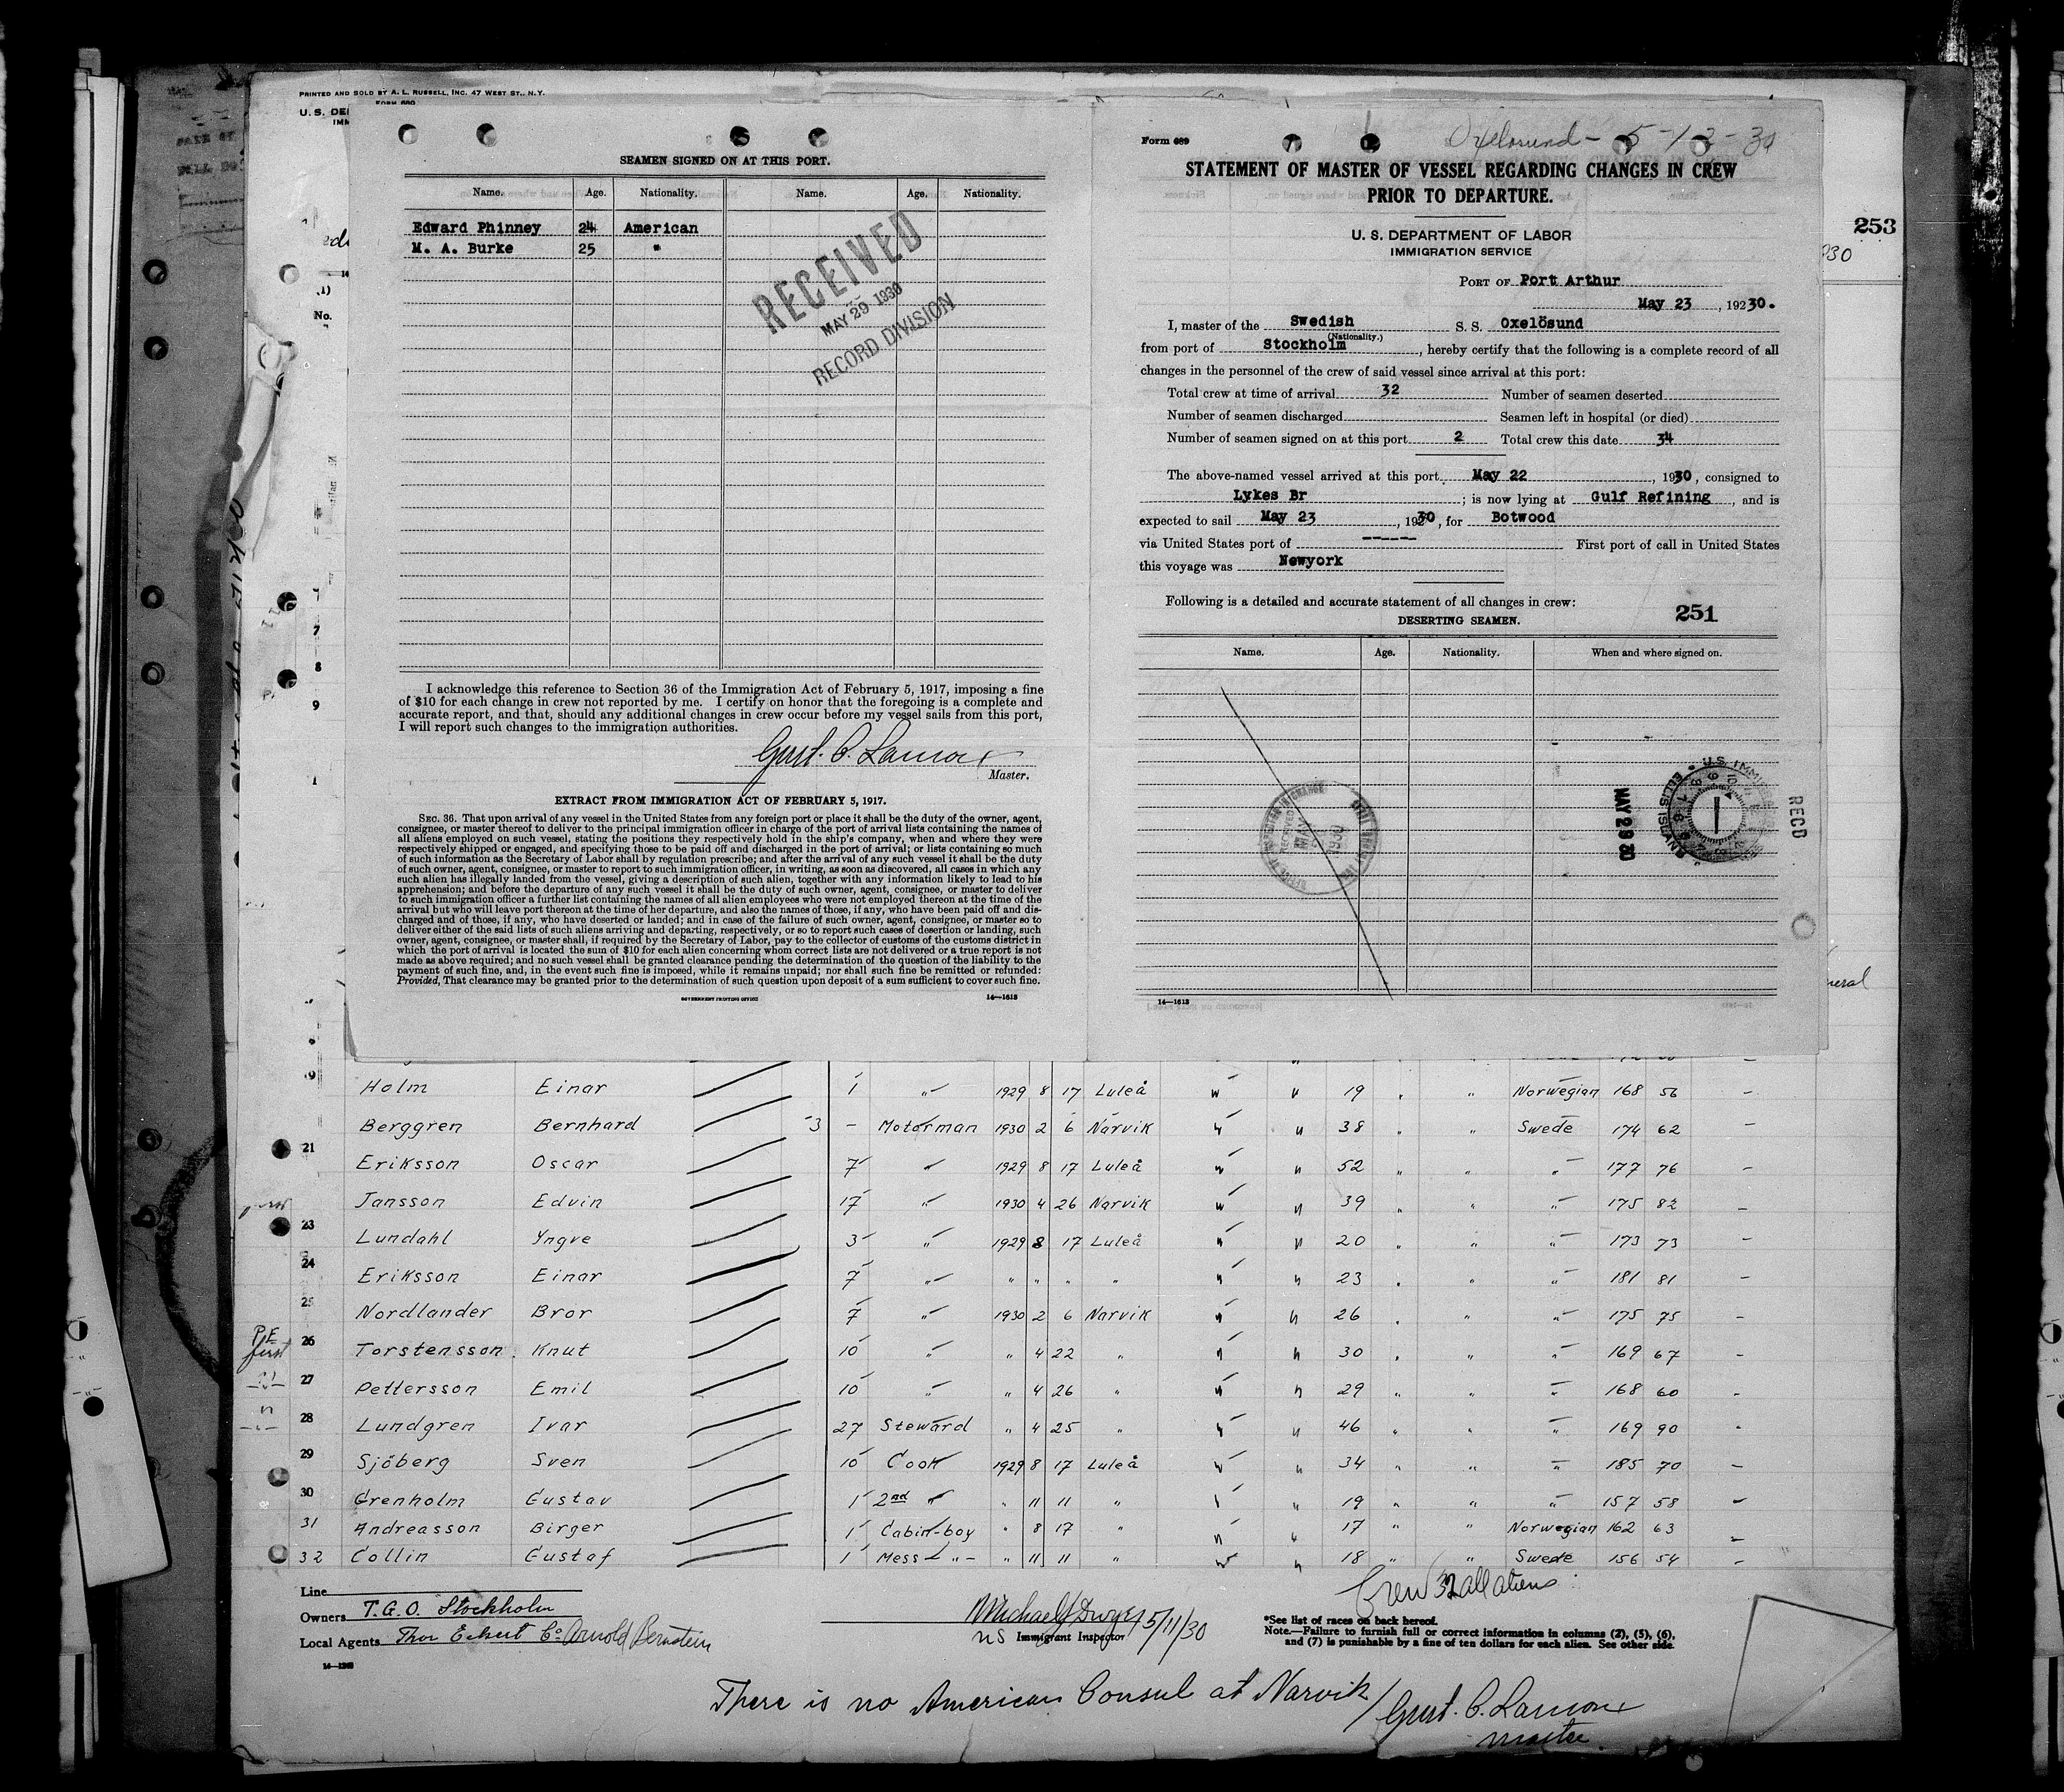 PRINTED AND SOLD BY A. L. RUSSELL, INC. 47 WEST ST., N.Y.
FORM 689
U. S. DE
IMM
(1)
No.
SEAMEN SIGNED ON AT THIS PORT.
Name. Age. Nationality. Name. Age. Nationality.
Edward Phinney 24 American
M. A. Burke 25 "
RECEIVED
MAY 29 1930
RECORD DIVISION
I acknowledge this reference to Section 36 of the Immigration Act of February 5, 1917, imposing a fine
of $10 for each change in crew not reported by me. I certify on honor that the foregoing is a complete and
accurate report, and that, should any additional changes in crew occur before my vessel sails from this port,
I will report such changes to the immigration authorities.
Master.
EXTRACT FROM IMMIGRATION ACT OF FEBRUARY 5, 1917.
SEC. 36. That upon arrival of any vessel in the United States from any foreign port or place it shall be the duty of the owner, agent,
consignee, or master thereof to deliver to the principal immigration officer in charge of the port of arrival lists containing the names of
all aliens employed on such vessel, stating the positions they respectively hold in the ship's company, when and where they were
respectively shipped or engaged, and specifying those to be paid off and discharged in the port of arrival; or lists containing so much
of such information as the Secretary of Labor shall by regulation prescribe; and after the arrival of any such vessel it shall be the duty
of such owner, agent, consignee, or master to report to such immigration officer, in writing, as soon as discovered, all cases in which any
such alien has illegally landed from the vessel, giving a description of such alien, together with any information likely to lead to his
apprehension; and before the departure of any such vessel it shall be the duty of such owner, agent, consignee, or master to deliver
to such immigration officer a further list containing the names of all alien employees who were not employed thereon at the time of the
arrival but who will leave port thereon at the time of her departure, and also the names of those, if any, who have been paid off and dis-
charged and of those, if any, who have deserted or landed; and in case of the failure of such owner, agent, consignee, or master so to
deliver either of the said lists of such aliens arriving and departing, respectively, or so to report such cases of desertion or landing, such
owner, agent, consignee, or master shall, if required by the Secretary of Labor, pay to the collector of customs of the customs district in
which the port of arrival is located the sum of $10 for each alien concerning whom correct lists are not delivered or a true report is not
made as above required; and no such vessel shall be granted clearance pending the determination of the question of the liability to the
payment of such fine, and, in the event such fine is imposed, while it remains unpaid; nor shall such fine be remitted or refunded:
Provided, That clearance may be granted prior to the determination of such question upon deposit of a sum sufficient to cover such fine.
GOVERNMENT PRINTING OFFICE 14—1613
Form 689 Oxelosund - 5-13-30
STATEMENT OF MASTER OF VESSEL REGARDING CHANGES IN CREW
PRIOR TO DEPARTURE.
U. S. DEPARTMENT OF LABOR
IMMIGRATION SERVICE
253
PORT OF Port Arthur
May 23, 19230.
I, master of the Swedish S. S. Oxelösund
(Nationality.)
from port of Stockholm, hereby certify that the following is a complete record of all
changes in the personnel of the crew of said vessel since arrival at this port:
Total crew at time of arrival 32 Number of seamen deserted
Number of seamen discharged Seamen left in hospital (or died)
Number of seamen signed on at this port 2 Total crew this date 34
The above-named vessel arrived at this port May 22, 1930, consigned to
Lykes Br ; is now lying at Gulf Refining, and is
expected to sail May 23, 19230, for Botwood
via United States port of ------ First port of call in United States
this voyage was Newyork
Following is a detailed and accurate statement of all changes in crew:
251
DESERTING SEAMEN.
Name. Age. Nationality. When and where signed on.
MAY 29 30
RECD
14—1613
Holm Einar 1 " 1929 8 17 Luleå " " 19 " " Norwegian 168 56 —
Berggren Bernhard 3 - Motorman 1930 2 6 Narvik " " 38 " " Swede 174 62 —
21 Eriksson Oscar 7 " 1929 8 17 Luleå " " 52 " " " 177 76 —
Jansson Edvin 17 " 1930 4 26 Narvik " " 39 " " " 175 82 —
23 Lundahl Yngve 3 " 1929 8 17 Luleå " " 20 " " " 173 73 —
24 Eriksson Einar 7 " " " " " " " 23 " " " 181 81 —
25 Nordlander Bror 7 " 1930 2 6 Narvik " " 26 " " " 175 75 —
26 Torstensson Knut 10 " " 4 22 " " " 30 " " " 169 67 —
27 Pettersson Emil 10 " " 4 26 " " " 29 " " " 168 60 —
28 Lundgren Ivar 27 Steward " 4 25 " " " 46 " " " 169 90 —
29 Sjöberg Sven 10 Cook 1929 8 17 Luleå " " 34 " " " 185 70 —
30 Grenholm Gustav 1 2nd " " 11 11 " " " 19 " " " 157 58 —
31 Andreasson Birger 1 Cabin-boy " 8 17 " " " 17 " " Norwegian 162 63 —
32 Collin Gustaf 1 Mess- " - " 11 11 " " " 18 " " Swede 156 54 —
Crew 32 all aliens
Line
Owners T.G.O. Stockholm
Local Agents Thor Eckert Co Arnold Bernstein
Immigrant Inspector 5/11/30
*See list of races on back hereof.
Note.—Failure to furnish full or correct information in columns (2), (5), (6),
and (7) is punishable by a fine of ten dollars for each alien. See other side.
There is no American Consul at Narvik/
master.